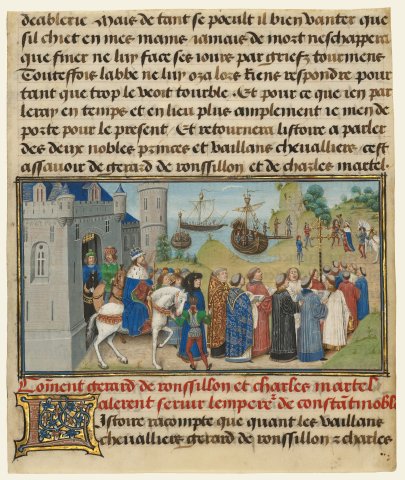 deablerie Mais de tant se poeult il bien vanter que
sil chiet en mes mains iamais de mort neschappera
que finer ne luy face ses iours par griefz tourmens
Touteffois labbe ne luy oza lors Riens respondre pour
tant que trop le veoit tourble Et pour ce que ien par
leray en temps et en lieu plus amplement ie men de
porte pour le present Et retournera listoire a parler
des deux nobles princes et vaillans chevalliers cest
assavoir de gerard de roussillon et de charles martel
Coment gerard de roussillon et charles martel
alerent servir lempereur de constātinoble
Listoire racompte que quant les vaillans
chevalliers gerard de roussillon z charles